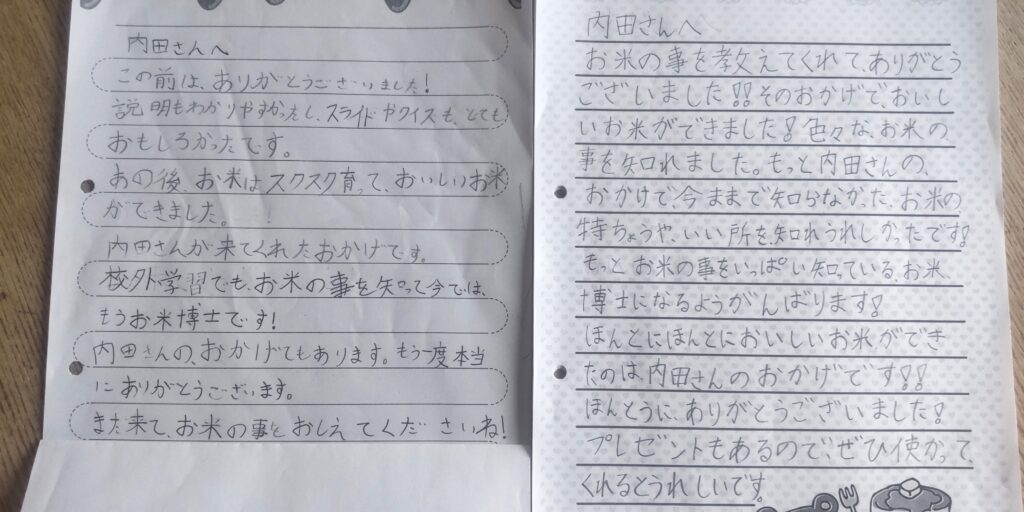 内田さんへ
この前は、ありがとうございました!
説明もわかりやすかったし、スライドやクイズも、とても
おもしろかったです。
あの後、お米はスクスク育って、おいしいお米
ができました。
内田さんが来てくれたおかげです。
校外学習でも、お米の事を知って今では、
もうお米博士です!
内田さんの、おかげでもあります。もう一度本当
にありがとうございます。
また来て、お米の事をおしえてくださいね!
内田さんへ
お米の事を教えてくれて、ありがとう
ございました!!そのおかげで、おいし
いお米ができました!色々な、お米の
事を知れました。もっと内田さんの、
おかげで、今ままで知らなかった、お米の
特ちょうや、いい所を、知れうれしかったです!
もっとお米の事をいっぱい知っている、お米
博士になるようがんばります!
ほんとにほんとにおいしいお米ができ
たのは内田さんのおかげです!!
ほんとうに、ありがとうございました!
プレゼントもあるので、ぜひ使かって
くれるとうれしいです。